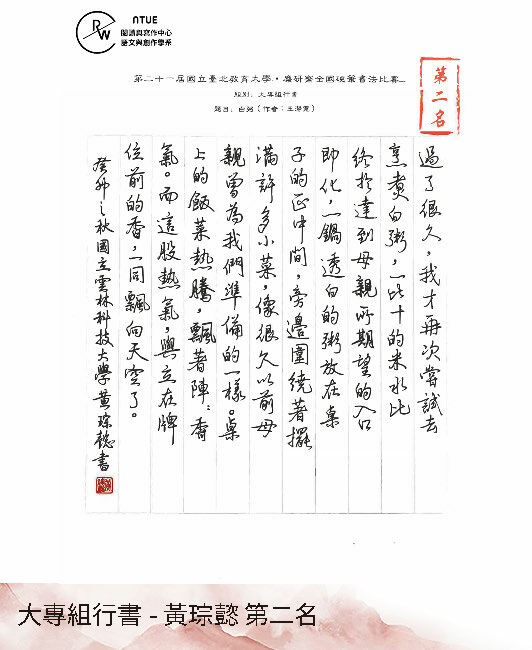 RW
NTUE
閱讀與寫作中心
語文與創作學系
第二十一屆國立臺北教育大學‧研齋全國硬筆書法比賽
組別：大專組行書
題目：白粥（作者：王
第二名
過了很久，我才再次嘗試去
烹煮白粥，一比十的米水比
終於達到母親所期望的入口
即化，一鍋透白的粥放在桌
子的正中間，旁邊圍繞著擺
滿許多小菜，像很久以前母
親曾為我們準備的一樣。桌
上的飯菜熱騰，飄著陣：香
氣。而這股熱氣，與立在牌
位前的香，一同飄向天空了。
癸卯之秋國立雲林科技大學黃琮懿書
大專組行書 - 黃琮懿 第二名